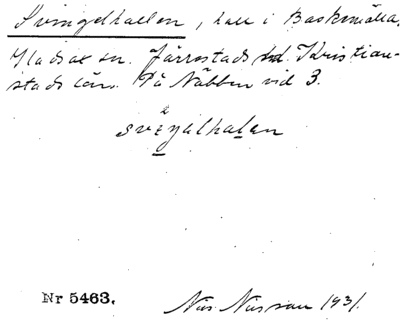 Svingelhallen, hall i Baskemölla,
Gladsax sn. Järrestads hd. Kristian-
stads län. På Näbben vid 3.
svegalhalen
Nr 5463.
Nils Nilsson 1931.